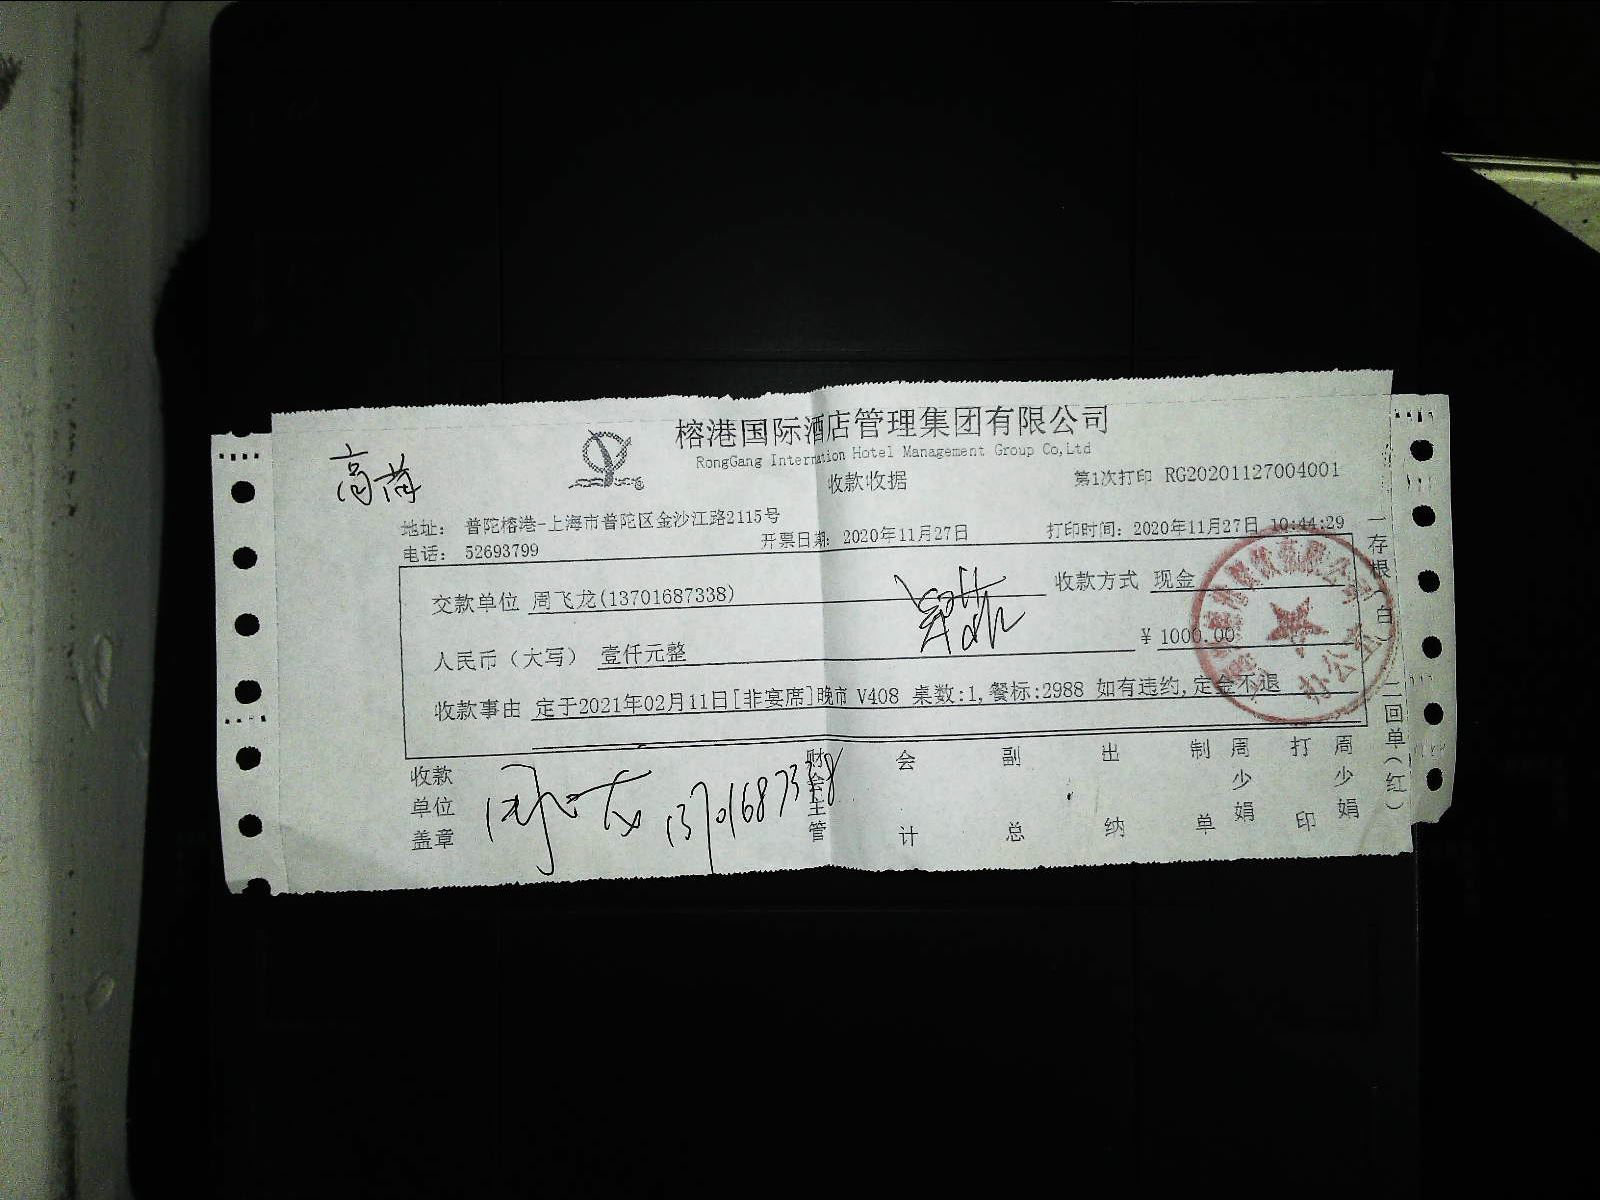 榕港国际酒店管理集团有限公司
RongGang Internation Hotel Management Group Co,Ltd
收款收据
第1次打印 RG20201127004001
高
地址： 普陀榕港-上海市普陀区金沙江路2115号
电话： 52693799
开票日期：2020年11月27日
打印时间：2020年11月27日 10:44:29
交款单位 周飞龙(13701687338)
收款方式 现金
人民币（大写） 壹仟元整
¥ 1000.00
收款事由 定于2021年02月11日[非宴席]晚市 V408 桌数:1,餐标:2988 如有违约,定金不退
办公室
收款单位盖章
13701687338
财会主管
会计
副总
出纳
制单
周少娟
打印
周少娟
一存根（白）二回单（红）